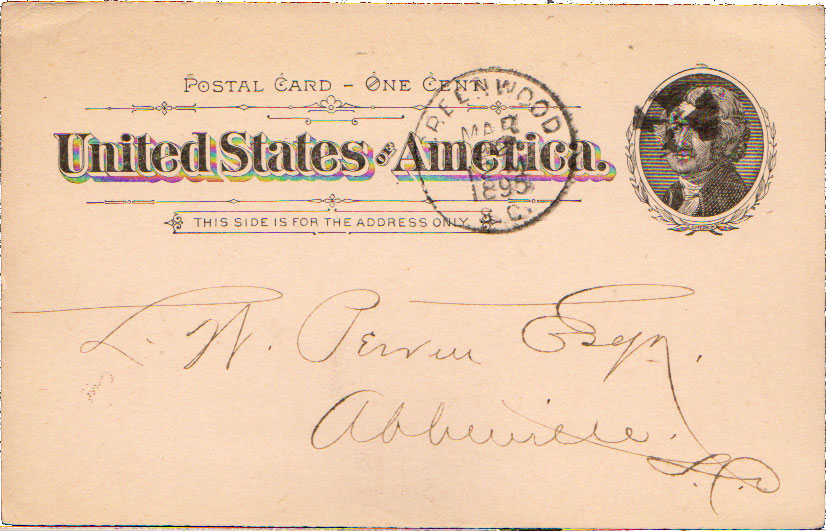 POSTAL CARD - ONE CENT.
United States of America.
THIS SIDE IS FOR THE ADDRESS ONLY.
REENWOOD
MAR
1895
S.C.
L. W. Perrin Esqr.
Abbeville.
S.C.